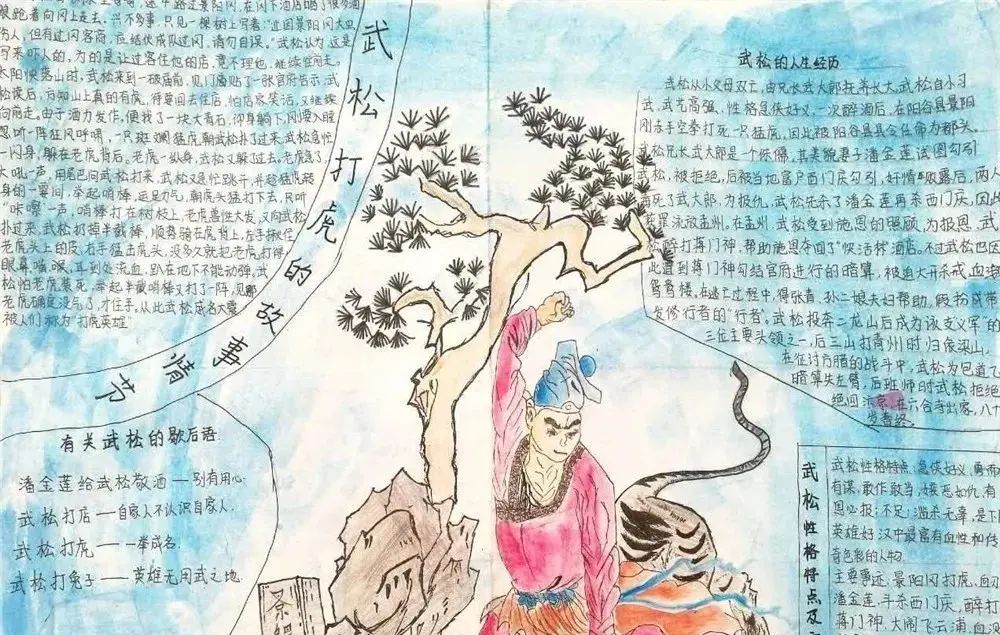 狼跑着向冈上走去。兴不多事,只见一棵树上写着:"近因景阳冈大虫
伤人,但有过冈客商,应结伙成队过冈,请勿自误。"武松认为,这是
写来吓人的,为的是让过客住他的店,竟不理他,继续往前走。
太阳快落山时,武松来到一破庙前,见门上贴了一张官府告示,武
松读后,方知山上真的有虎,待要回去住店,怕店家笑话,又继续
向前走。由于酒力发作,便找了一块大青石,仰身躺下,刚要入睡,
忽听一阵狂风呼啸,一只斑斓猛虎朝武松扑了过来,武松急忙
一闪身,躲在老虎背后。老虎一纵身,武松又躲了过去。老虎急了,
大吼一声,用尾巴向武松打来,武松又急忙跳开,并趁猛虎转
身的一霎间,举起哨棒,运足力气,朝虎头猛打下去。只听
"咔嚓"一声,哨棒打在树枝上。老虎兽性大发,又向武松
扑过来,武松扔掉半截棒,顺势骑在虎背上,左手揪住
老虎头上的皮,右手猛击虎头,没多久就把老虎打得
眼鼻嘴、眼、耳到处流血,趴在地下不能动弹。武
松怕老虎装死,举起半截哨棒又打了一阵,见那
老虎确实没气了,才住手。从此武松威名大震,
被人们称为"打虎英雄"
武松打虎的故事情节
有关武松的歇后语
潘金莲给武松敬酒——别有用心
武松打店——自家人不认识自家人
武松打虎——一举成名
武松打兔子——英雄无用武之地
武松的人生经历
武松从小父母双亡,由兄长武大郎抚养长大。武松自小习
武,武艺高强,性格急侠好义。一次醉酒后,在阳谷县景阳
冈赤手空拳打死一只猛虎,因此被阳谷县县令任命为都头。
武松兄长武大郎是一个侏儒,其美貌妻子潘金莲试图勾引
武松,被拒绝,后被当地富户西门庆勾引,奸情败露后,两人
毒死了武大郎,为报仇,武松先杀了潘金莲再杀西门庆,因此
获罪流放孟州。在孟州,武松受到施恩的照顾,为报恩,武
松醉打蒋门神,帮助施恩夺回了"快活林"酒店。不过武松也因
此遭到蒋门神勾结官府进行的暗算,被迫大开杀戒,血溅
鸳鸯楼。在逃亡过程中,得张青、孙二娘夫妇帮助,假扮成带
发修行者的"行者"。武松投奔二龙山后成为该支"义军"的
三位主要头领之一,后三山打青州时归依梁山。
在征讨方腊的战斗中,武松为包道乙
暗算失左臂,后班师时武松拒绝
绝回汴京,在六合寺出家,八十
岁善终。
武松性格特点及
武松性格特点:急侠好义,勇而
有谋,敢作敢当,嫉恶如仇,有
恩必报;不足:滥杀无辜,是下
英雄好汉中最富有血性和传
奇色彩的人物。
主要事迹:景阳冈打虎,血刃
潘金莲,斗杀西门庆,醉打
蒋门神,大闹飞云浦,血溅
景阳